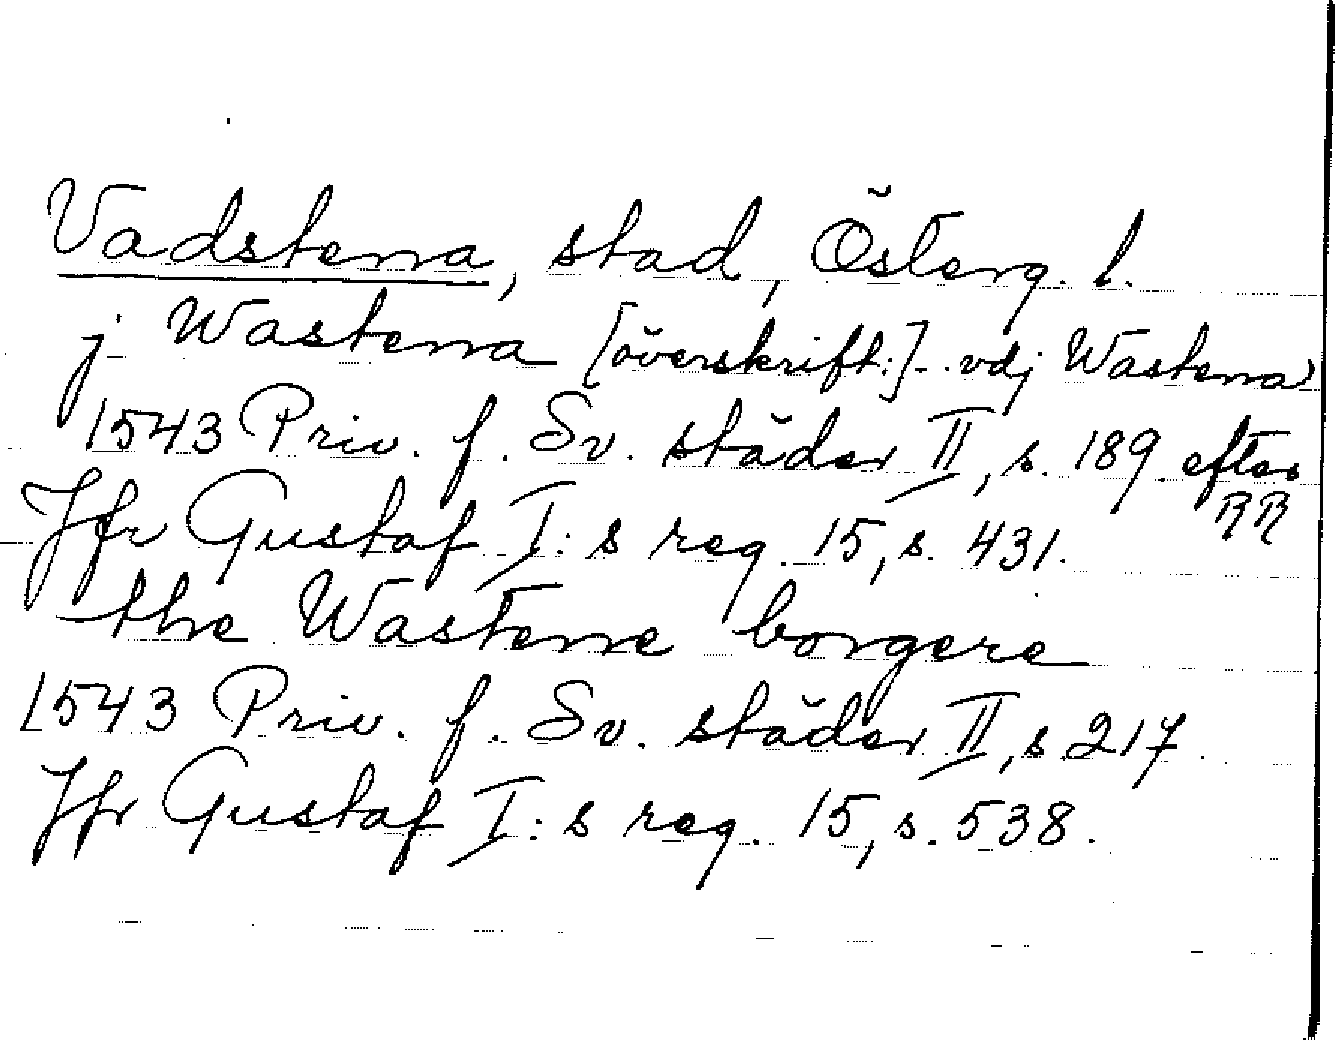 Vadstena, stad, Österg. l.
j Wastena [överskrift:] vdj Wastena
1543 Priv. f. Sv. städer II, s. 189 efter
RR
Jfr Gustaf I:s reg. 15, s. 431.
the Wastene borgere
1543 Priv. f. Sv. städer II, s 217
Jfr Gustaf I:s reg. 15, s. 538.